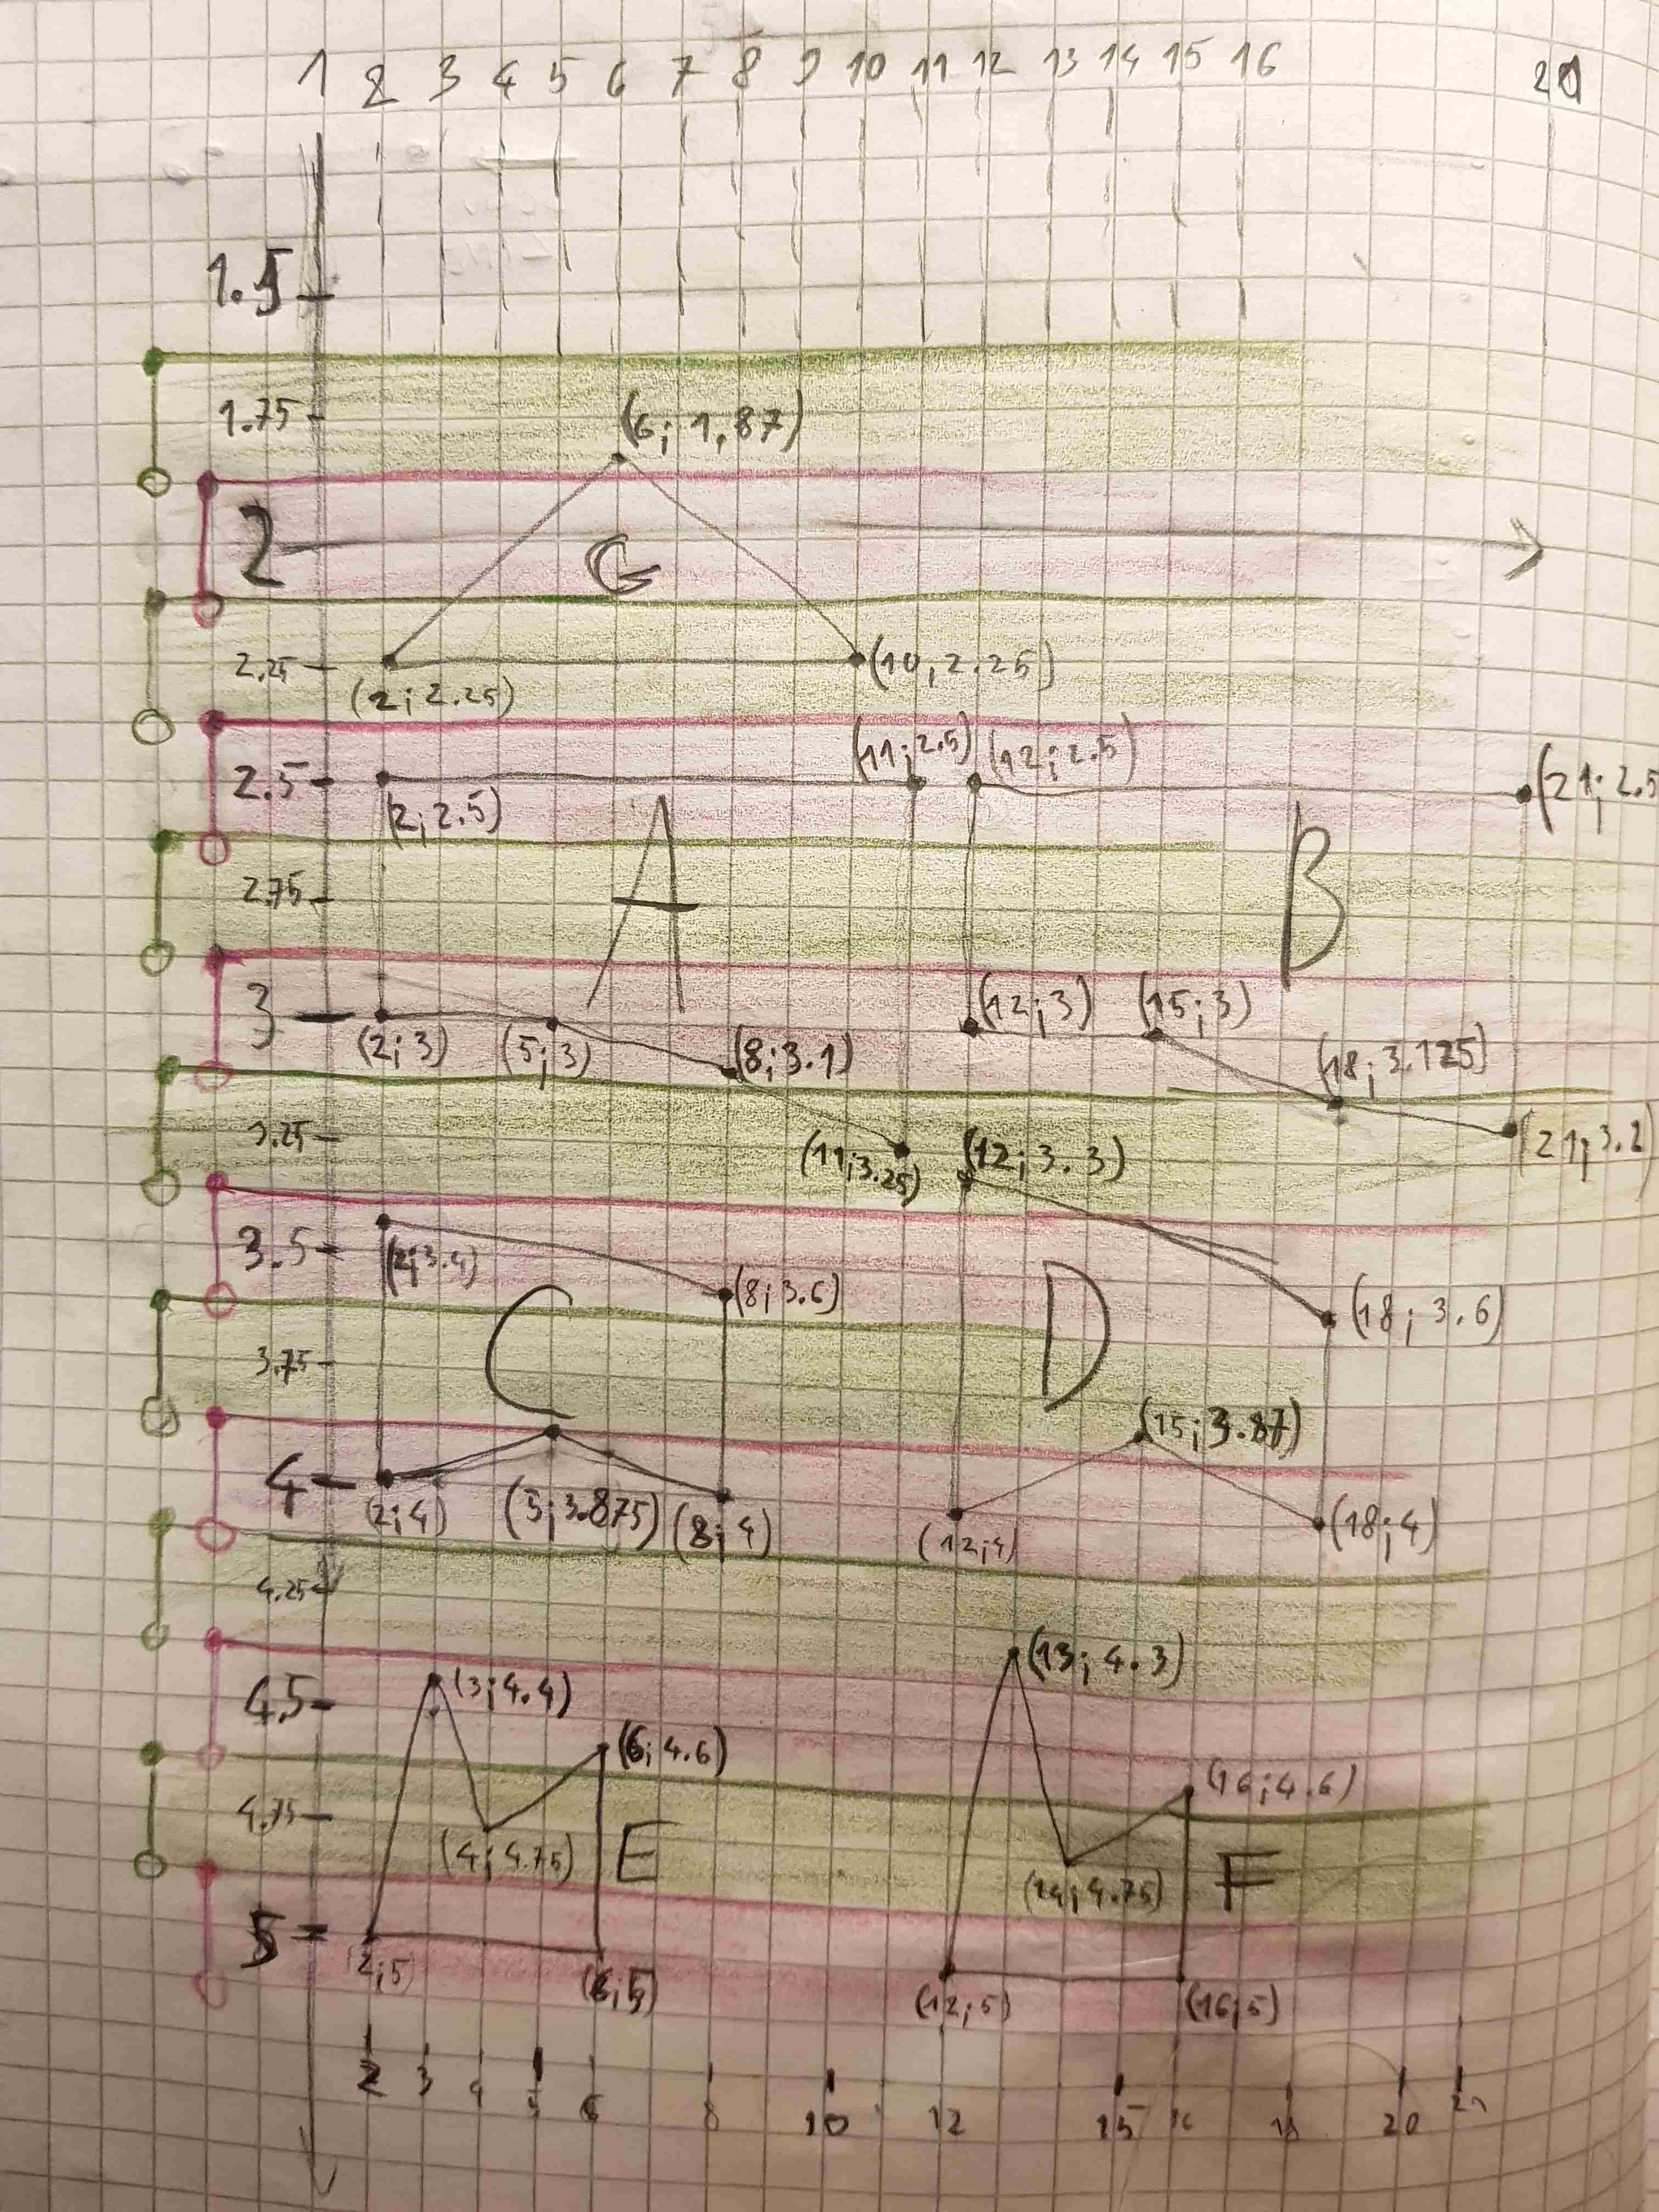 1 2 3 4 5 6 7 8 9 10 11 12 13 14 15 16
1.5
1.75
(6; 1,87)
2
G
2.25
(2; 2.25)
(10, 2.25)
(11; 2.5) (12; 2.5)
2.5
(2; 2.5)
(21; 2.5
A
B
2.75
3
(2; 3) (5; 3)
(8; 3.1)
(12; 3) (15; 3)
(18; 3.125)
(11; 3.25)
(12; 3.3)
(21; 3.2)
3.5
(2; 3.4)
(8; 3.6)
C
D
(18; 3.6)
3.75
(15; 3.87)
4
(2; 4) (5; 3.875) (8; 4)
(12; 4)
(18; 4)
4.25
4.5
(3; 4.4)
(13; 4.3)
(6; 4.6)
(16; 4.6)
4.75
(4; 4.75)
E
(14; 4.75)
F
5
(2; 5)
(6; 5)
(12; 5)
(16; 5)
2 3 4 5 6 8 10 12 15 16 18 20 21